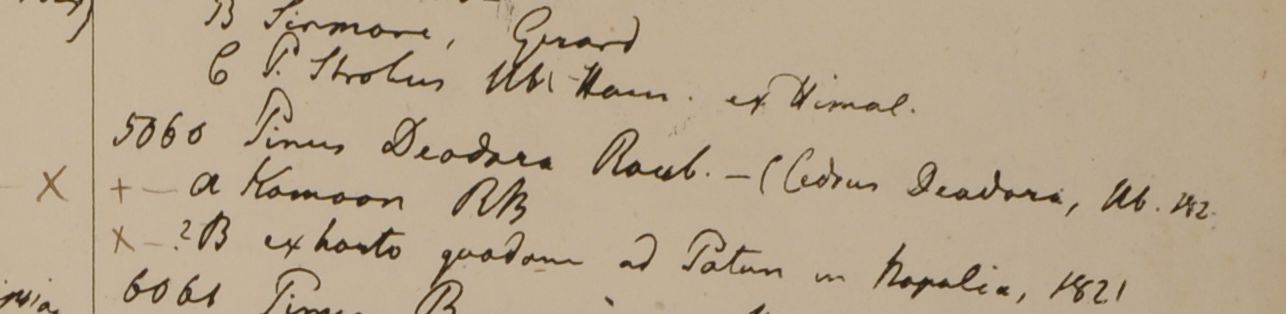 B Sirmore, Gerard
C P. Strobus Hb. Ham. ex Himal.
5060 Pinus Deodara Roxb. — (Cedrus Deodara, Hb. 182
X + — a Kamaon RB
X — ? B ex horto quodam ad Patun in Napalia, 1821
6061 Pinus B